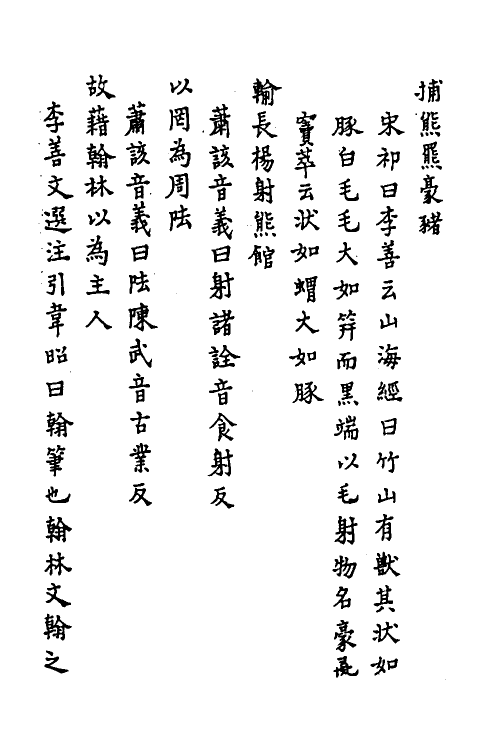 捕熊羆豪豬
宋祁曰李善云山海經曰竹山有獸其状如
豚白毛毛大如笄而黒端以毛射物名豪彘
竇萃云状如蝟大如豚
輸長楊射熊館
蕭該音義曰射諸詮音食射反
以罔為周阹
蕭該音義曰阹陳武音古業反
故藉翰林以為主人
李善文選注引韋昭曰翰筆也翰林文翰之